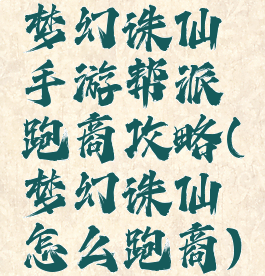 梦幻诛仙
手游帮派
跑商攻略(
梦幻诛仙
怎么跑商)